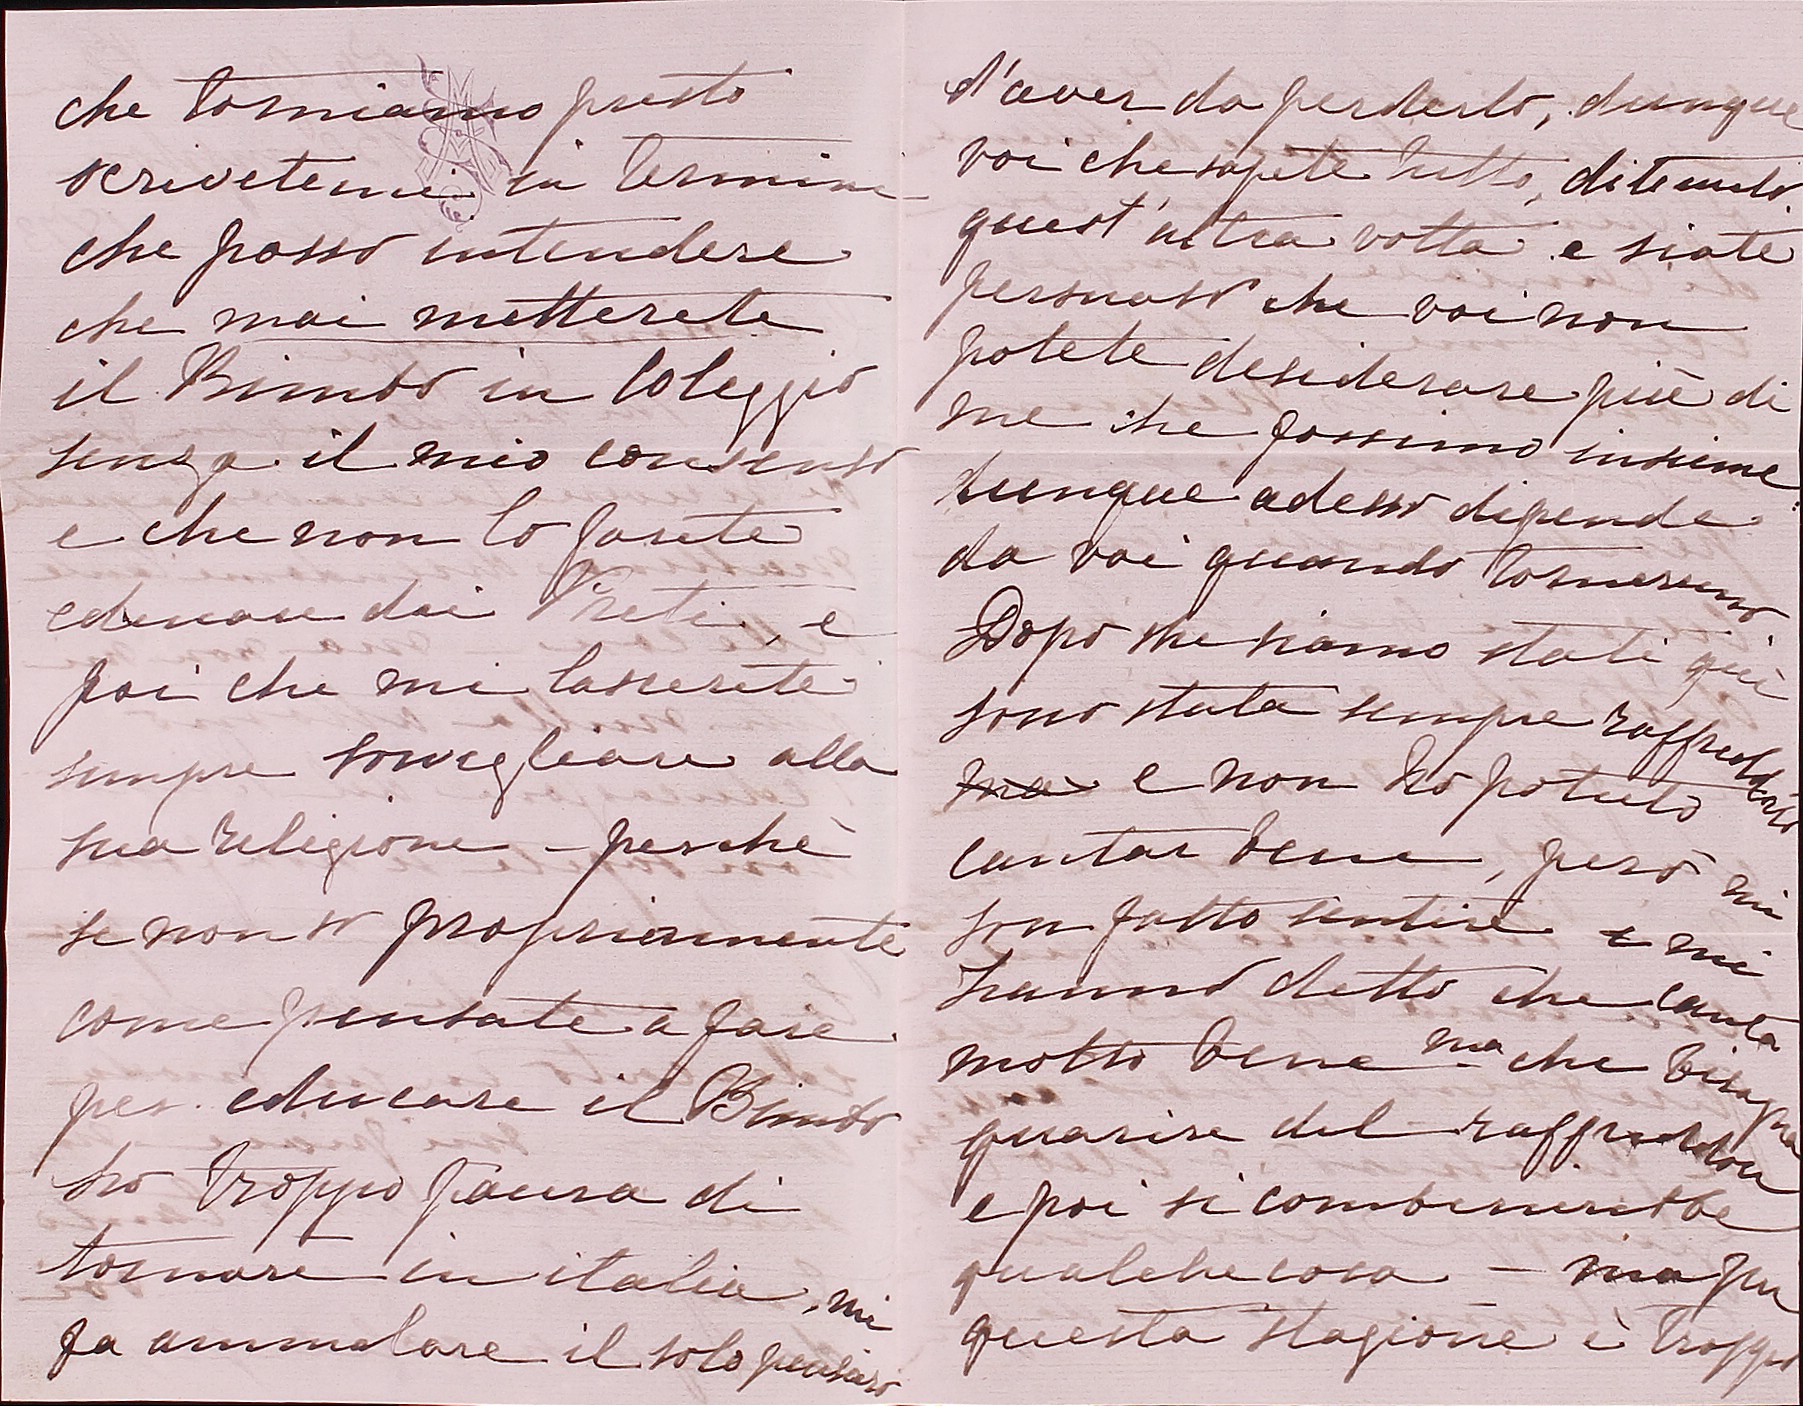 che torniamo presto
scrivetemi in termine
che posso intendere
che mai metterete
il Bimbo in Coleggio
senza il mio consenso
e che non lo farete
educare dai Preti, e
poi che mi lascerete
sempre sorvegliare alla
sua religione – perchè
se non so propriamente
come pensate a fare
per educare il Bimbo
ho troppo paura di
tornare in italia, mi
fa ammalare il solo pensiero
d'aver da perderlo, dunque
voi che sapete tutto, ditemelo
quest'altra volta e siate
persuaso che voi non
potete desiderare più di
me che fossimo insieme
dunque adesso dipende
da voi quando torneremo
Dopo che siamo stati quì
sono stata sempre raffreddata
ma e non ho potuto
cantar bene, però mi
son fatto sentire e mi
hanno detto che canta
molto bene ma che bisogna
guarire del raffreddore
e poi si combinerebbe
qualche cosa – ma per
questa stagione è troppo